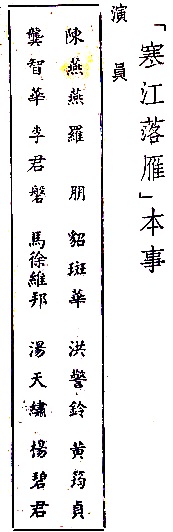 「寒江落雁」本事
演員
陳燕燕　羅　朋　貂斑華　洪警鈴　黃筠貞
龔智華　李君磐　馬徐維邦　湯天繡　楊碧君